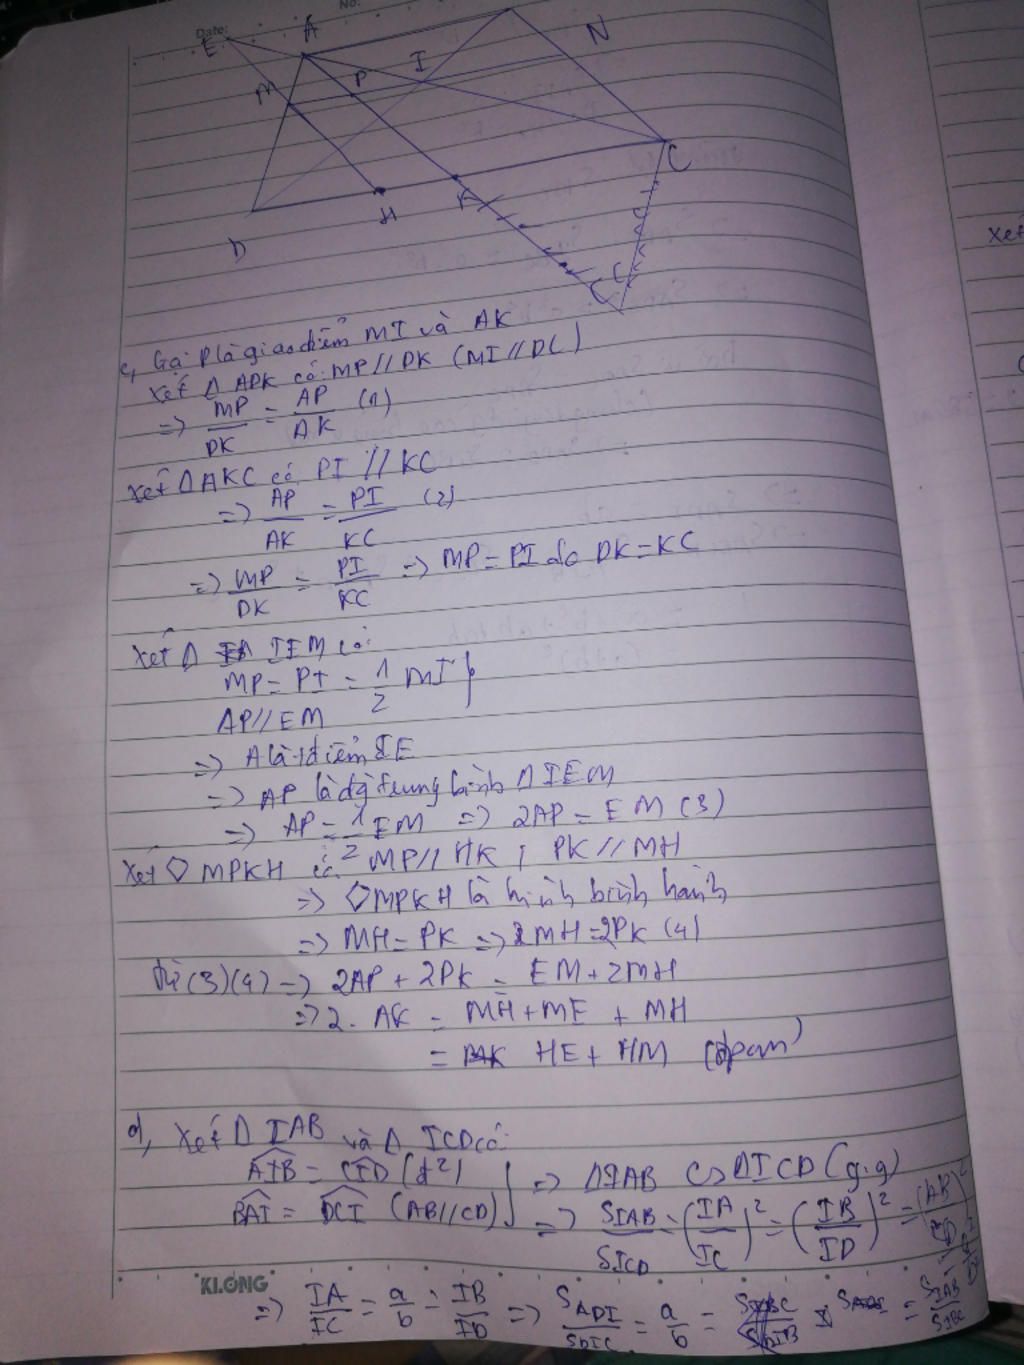 Date: No:
E A N
M P I
C
D H K
c, Gọi P là giao điểm MI và AK
Xét Δ ADK có: MP // DK (MI // DC)
=> MP/DK = AP/AK (1)
Xét Δ AKC có PI // KC
=> AP/AK = PI/KC (2)
=> MP/DK = PI/KC => MP = PI do DK = KC
Xét Δ IEM có:
MP = PI = 1/2 MI }
AP // EM
=> A là điểm IE
=> AP là đg trung bình Δ IEM
=> AP = 1/2 EM => 2AP = EM (3)
Xét ◇ MPKH có MP // HK ; PK // MH
=> ◇ MPKH là hình bình hành
=> MH = PK => 2MH = 2PK (4)
Từ (3)(4) => 2AP + 2PK = EM + 2MH
=> 2. AK = MH + ME + MH
= HE + HM (đpcm)
d, Xét Δ IAB và Δ ICD có:
AIB = CID (đ²) } => Δ IAB ∽ Δ ICD (g.g)
BAI = DCI (AB // CD) => S_IAB/S_ICD = (IA/IC)² = (IB/ID)² = (AB/CD)²
KLONG
=> IA/IC = a/b = IB/ID => S_ADI/S_DIC = a/b = S_IAB/S_IBC
Xét